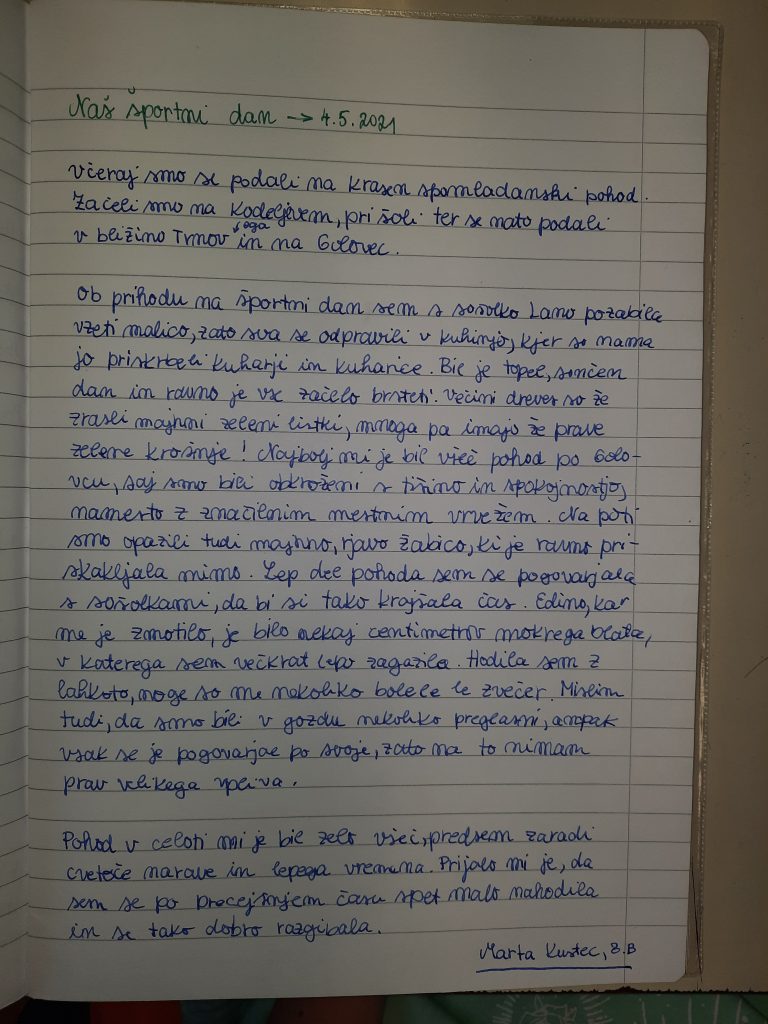 Naš športni dan → 4.5.2021
Včeraj smo se podali na krasen spomladanski pohod.
Začeli smo na Kodeljevem, pri šoli ter se nato podali
v bližino Trnov ega in na Golovec.
Ob prihodu na športni dan sem s sošolko Lano pozabila
vzeti malico, zato sva se odpravili v kuhinjo, kjer so nama
jo priskrbeli kuharji in kuharice. Bil je topel, sončen
dan in ravno je vse začelo brsteti. Večini dreves so že
zrasli majhni zeleni listki, mnoga pa imajo že prave
zelene krošnje! Najbolj mi je bil všeč pohod po Golo-
vcu, saj smo bili obkroženi s tišino in spokojnostjo,
namesto z značilnim mestnim vrvežem. Na poti
smo opazili tudi majhno, rjavo žabico, ki je ravno pri-
skakljala mimo. Lep del pohoda sem se pogovarjala
s sošolkami, da bi si tako krajšala čas. Edino, kar
me je zmotilo, je bilo nekaj centimetrov mokrega blata,
v katerega sem večkrat lepo zagazila. Hodila sem z
lahkoto, noge so me nekoliko bolele le zvečer. Mislim
tudi, da smo bili v gozdu nekoliko preglasni, ampak
vsak se je pogovarjal po svoje, zato na to nimam
prav velikega vpliva.
Pohod v celoti mi je bil zelo všeč, predsem zaradi
cvetoče narave in lepega vremena. Prijalo mi je, da
sem se po precejšnjem času spet malo nahodila
in se tako dobro razgibala.
Marta Kustec, 8.B